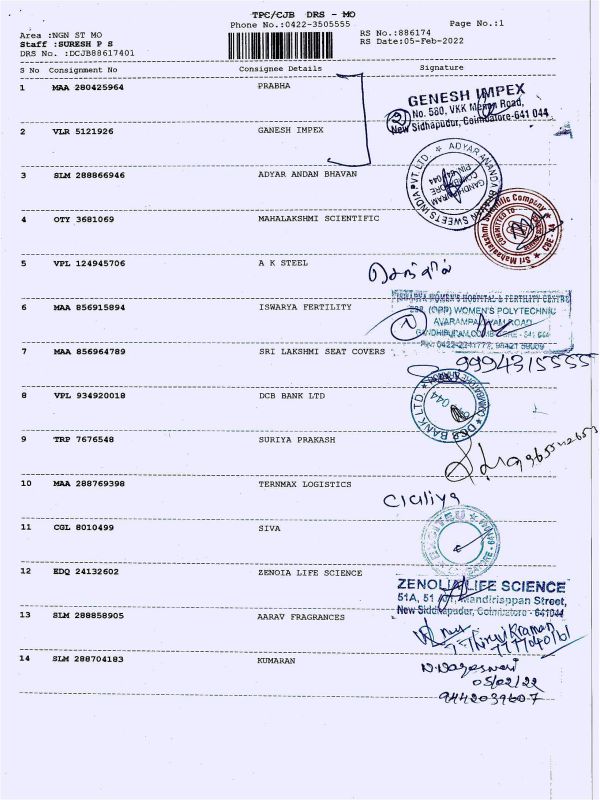 TPC/CJB DRS - MO
Phone No.:0422-3505555
Page No.:1
Area :NGN ST MO
RS No.:886174
Staff :SURESH P S
RS Date:05-Feb-2022
DRS No. :DCJB88617401
S No Consignment No Consignee Details Signature
1 MAA 280425964 PRABHA
GENESH IMPEX
No. 580, VKK Menon Road,
New Sidhapudur, Coimbatore-641 044
2
2 VLR 5121926 GANESH IMPEX
3 SLM 288866946 ADYAR ANDAN BHAVAN
ADYAR ANANDA BHAVAN SWEETS INDIA PVT. LTD.
GANDHIPURAM
COIMBATORE
4 OTY 3681069 MAHALAKSHMI SCIENTIFIC
Sri Mahalakshmi Scientific Company
COMMITTED TO
5 VPL 124945706 A K STEEL
செந்தில்
6 MAA 856915894 ISWARYA FERTILITY
ISWARYA WOMEN'S HOSPITAL & FERTILITY CENTRE
(OPP) WOMEN'S POLYTECHNIC
AVARAMPALAYAM ROAD
GANDHIPURAM, COIMBATORE
1
7 MAA 856964789 SRI LAKSHMI SEAT COVERS
9994315555
8 VPL 934920018 DCB BANK LTD
DCB BANK LTD.
044
9 TRP 7676548 SURIYA PRAKASH
10 MAA 288769398 TERNMAX LOGISTICS
11 CGL 8010499 SIVA
12 EDQ 24132602 ZENOIA LIFE SCIENCE
ZENOLIA LIFE SCIENCE
51A, 51 Nandirisppan Street,
New Siddhapudur, Coimbatore - 641044
13 SLM 288858905 AARAV FRAGRANCES
14 SLM 288704183 KUMARAN
N.Nageswari
05/02/22
9442039607